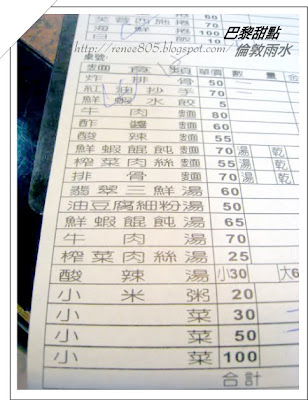 巴黎甜點
倫敦雨水
http://renee805.blogspot.com
60
海鮮捲 100
白飯 10
桌號:
麵食類 單價 數量
炸排骨 50
紅油抄手 70
鮮蝦水餃 5
牛肉麵 80
酢醬麵 60
酸辣麵 55
鮮蝦餛飩麵 70 湯 乾
榨菜肉絲麵 55 湯 乾
排骨麵 70 湯 乾
翡翠三鮮湯 60
油豆腐細粉湯 50
鮮蝦餛飩湯 65
牛肉湯 70
榨菜肉絲湯 25
酸辣湯 小30 大6
小米粥 20
小菜 30
小菜 50
小菜 100
合計